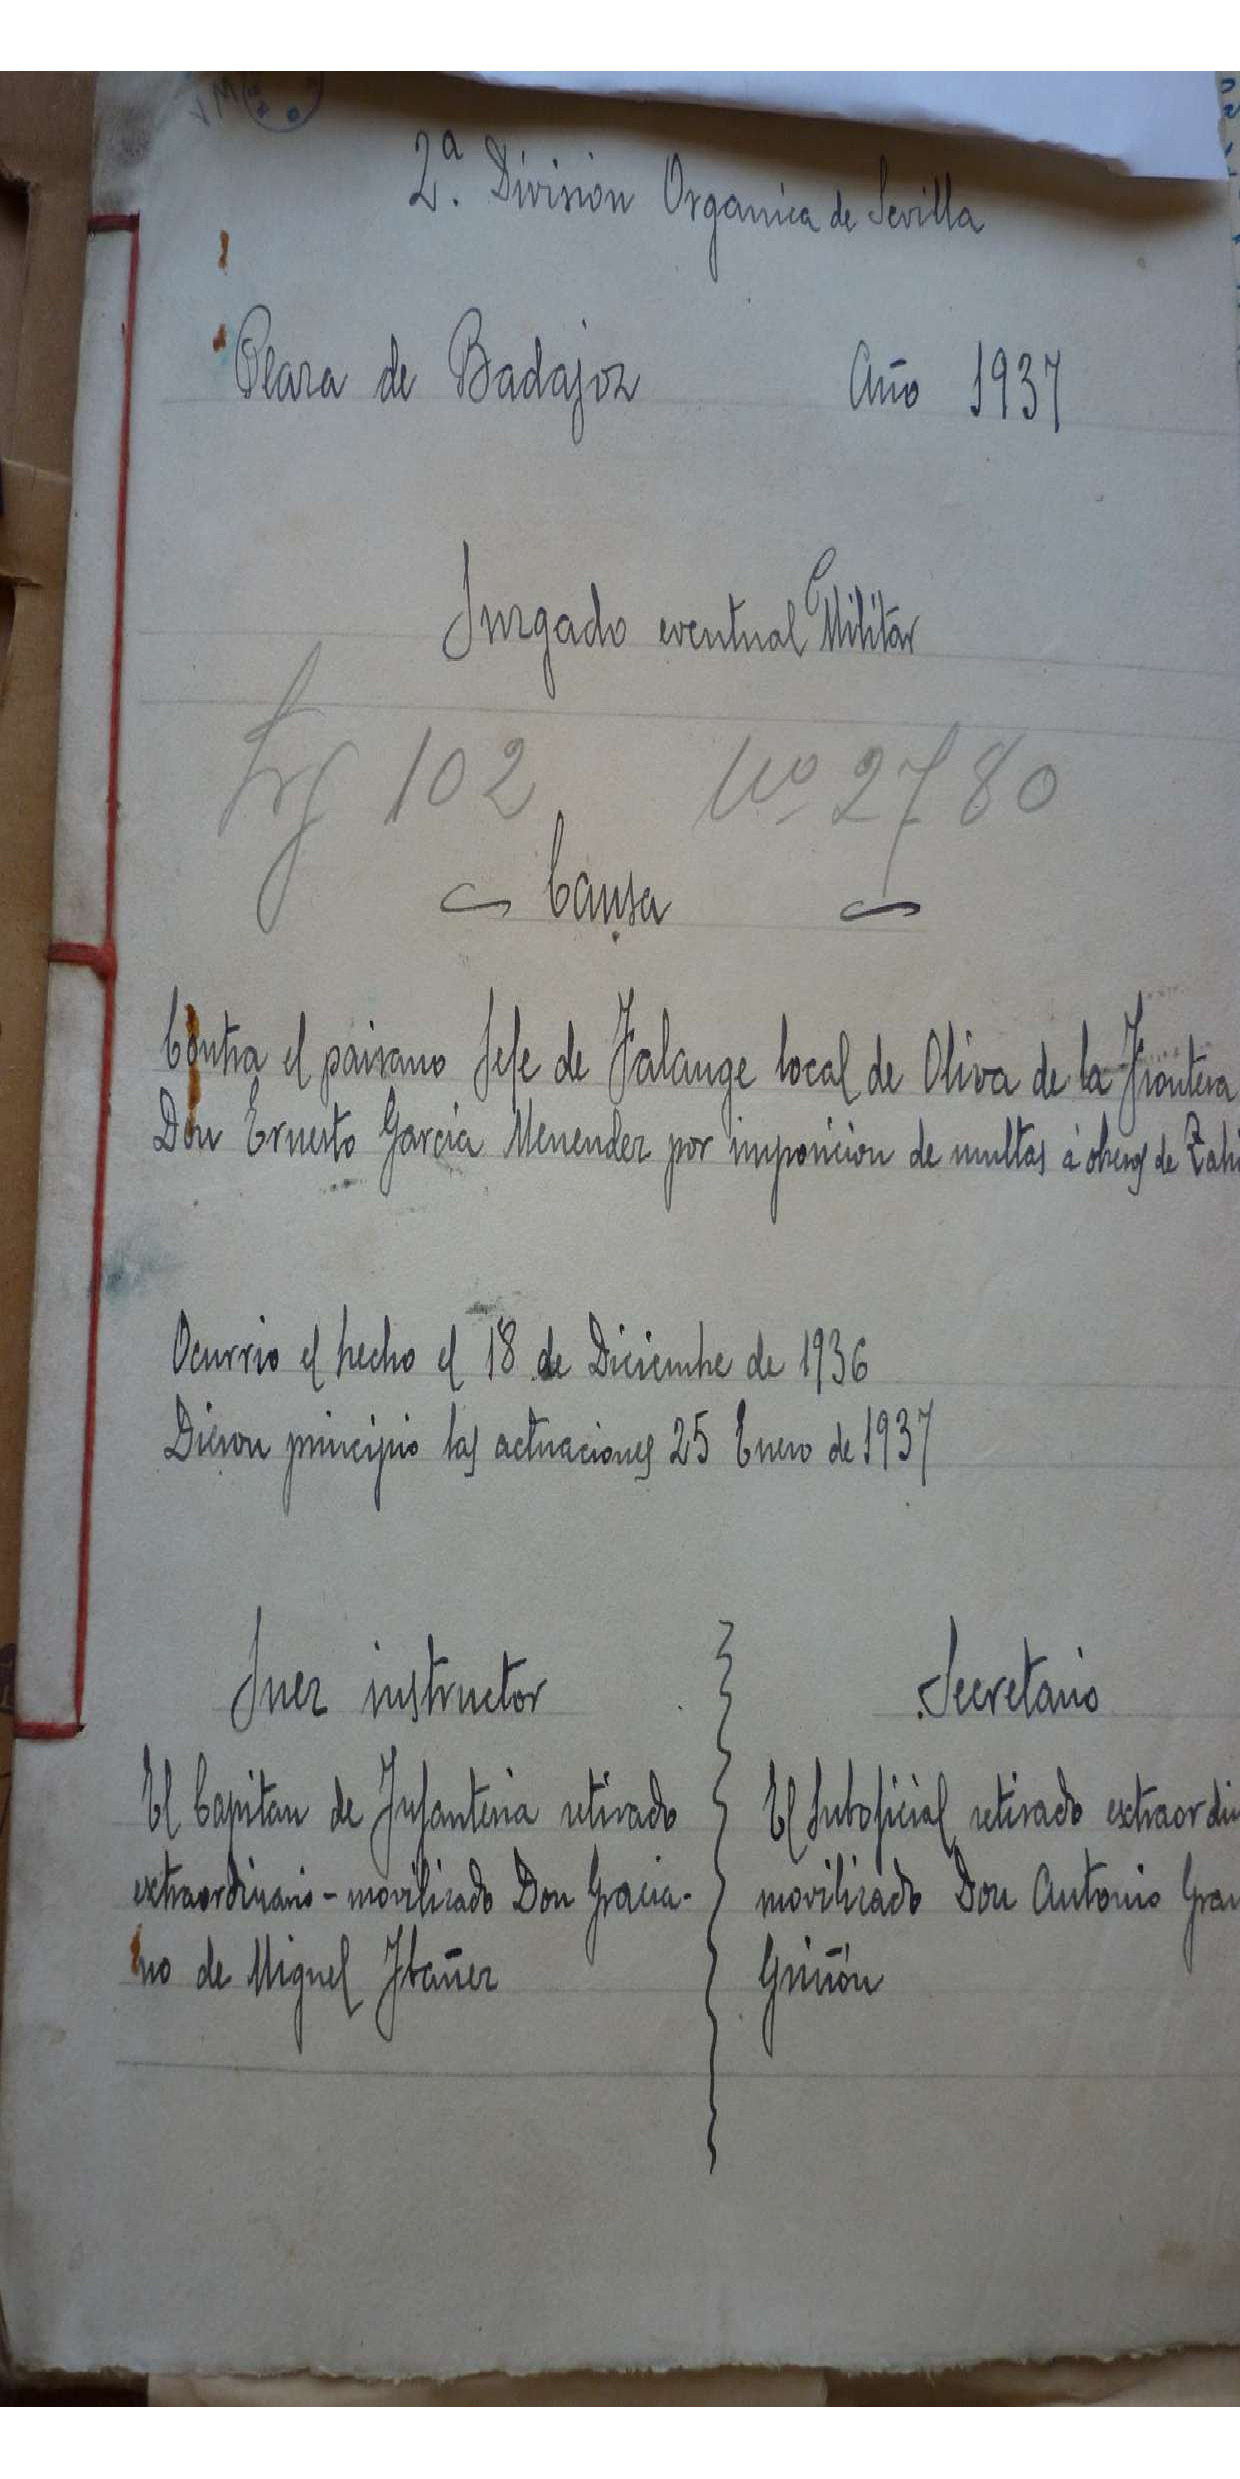 2ª. Division Organica de Sevilla
Plaza de Badajoz Año 1937
Juzgado eventual Militar
Leg 102 Nº 2780
Causa
Contra el paisano Jefe de Falange local de Oliva de la Frontera
Don Ernesto García Menendez por imposicion de multas á obreros de Zahi
Ocurrio el hecho el 18 de Diciembre de 1936
Dieron principio las actuaciones 25 Enero de 1937
Juez instructor
El Capitan de Infanteria retirado
extraordinario - movilizado Don Gracia-
no de Miguel Ibañez
Secretario
El Suboficial retirado extraordin
movilizado Don Antonio Gran
Griñón